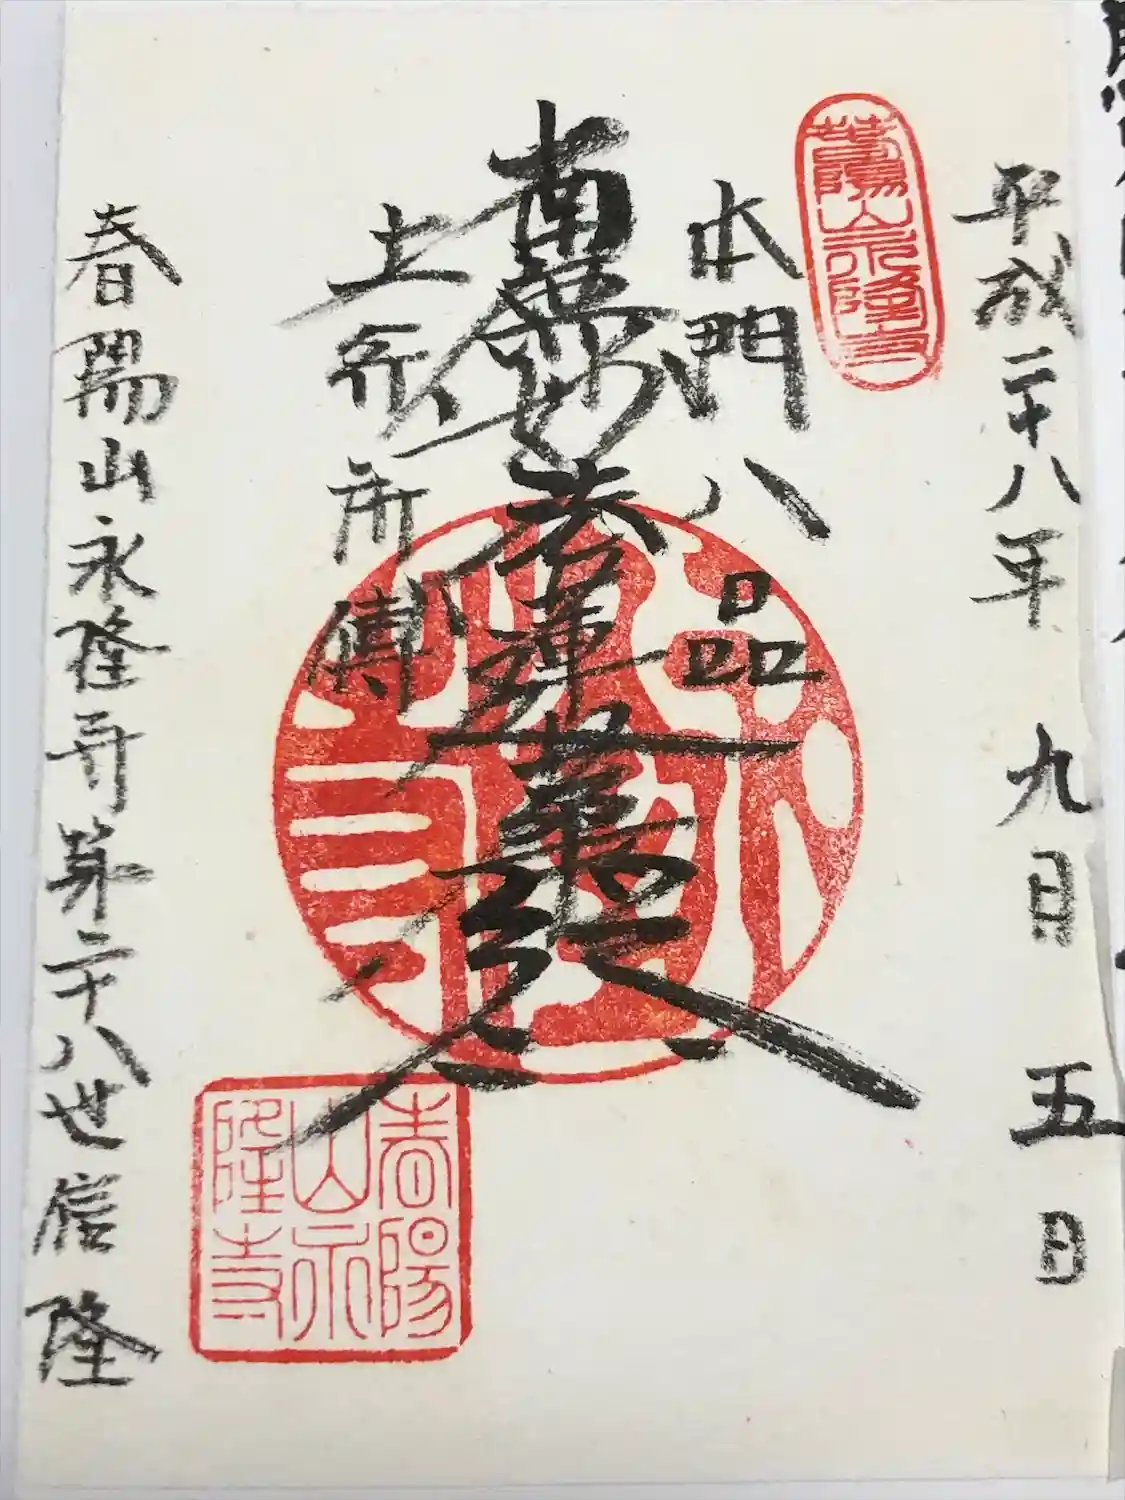 平成二十八年 九日 五日
春陽山永隆寺
本門八品
南無妙法蓮華経
上行所傳
永隆寺
春陽山永隆寺
春陽山永隆寺第二十八世信隆